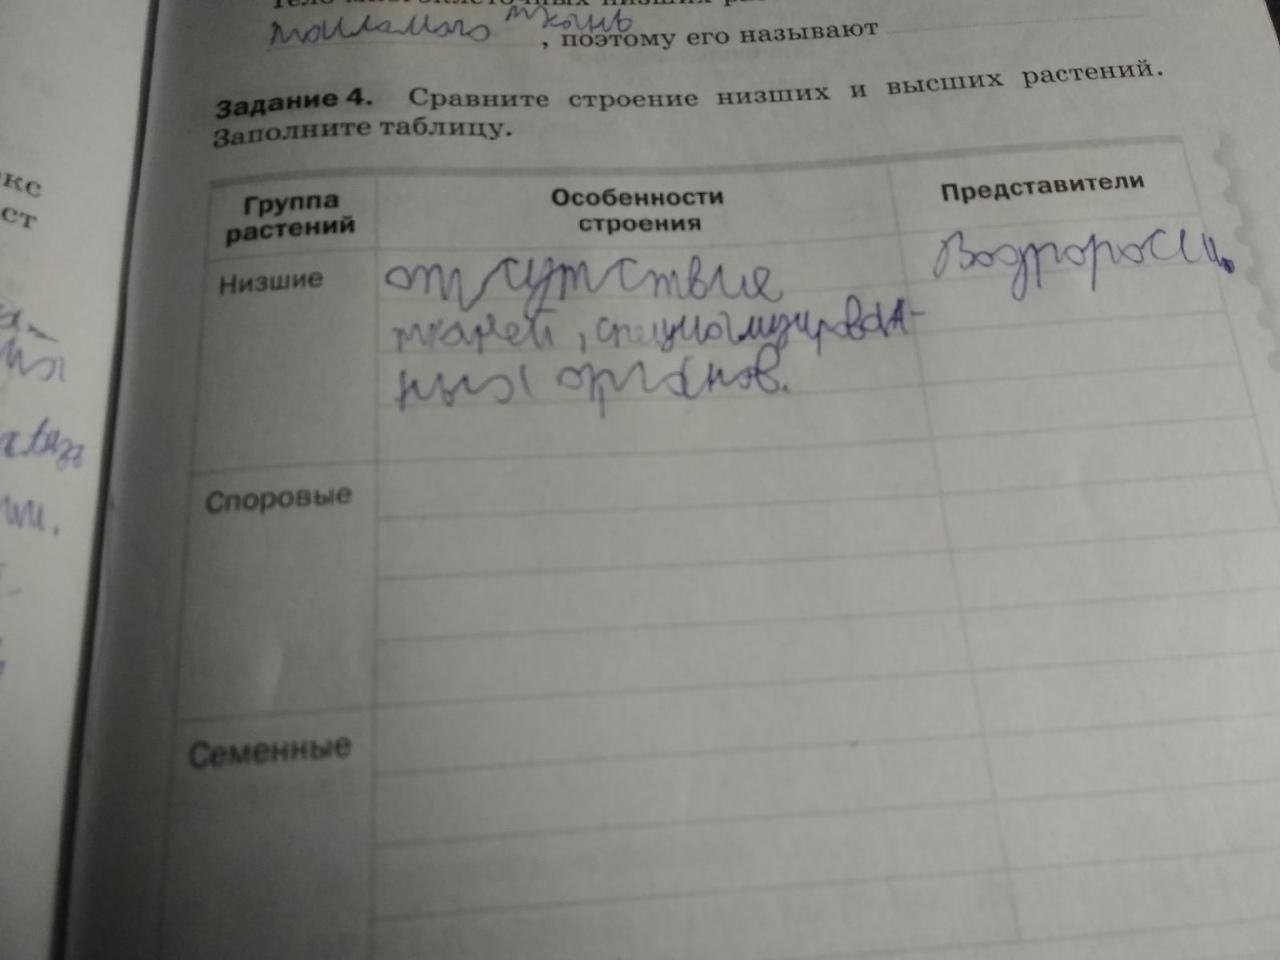 Тело многоклеточных низших рас
ткань
, поэтому его называют
Задание 4. Сравните строение низших и высших растений.
Заполните таблицу.
Группа растений
Особенности строения
Представители
Низшие
отсутствие
Водоросли.
тканей, специализирован-
ных органов.
Споровые
Семенные
кс
ст